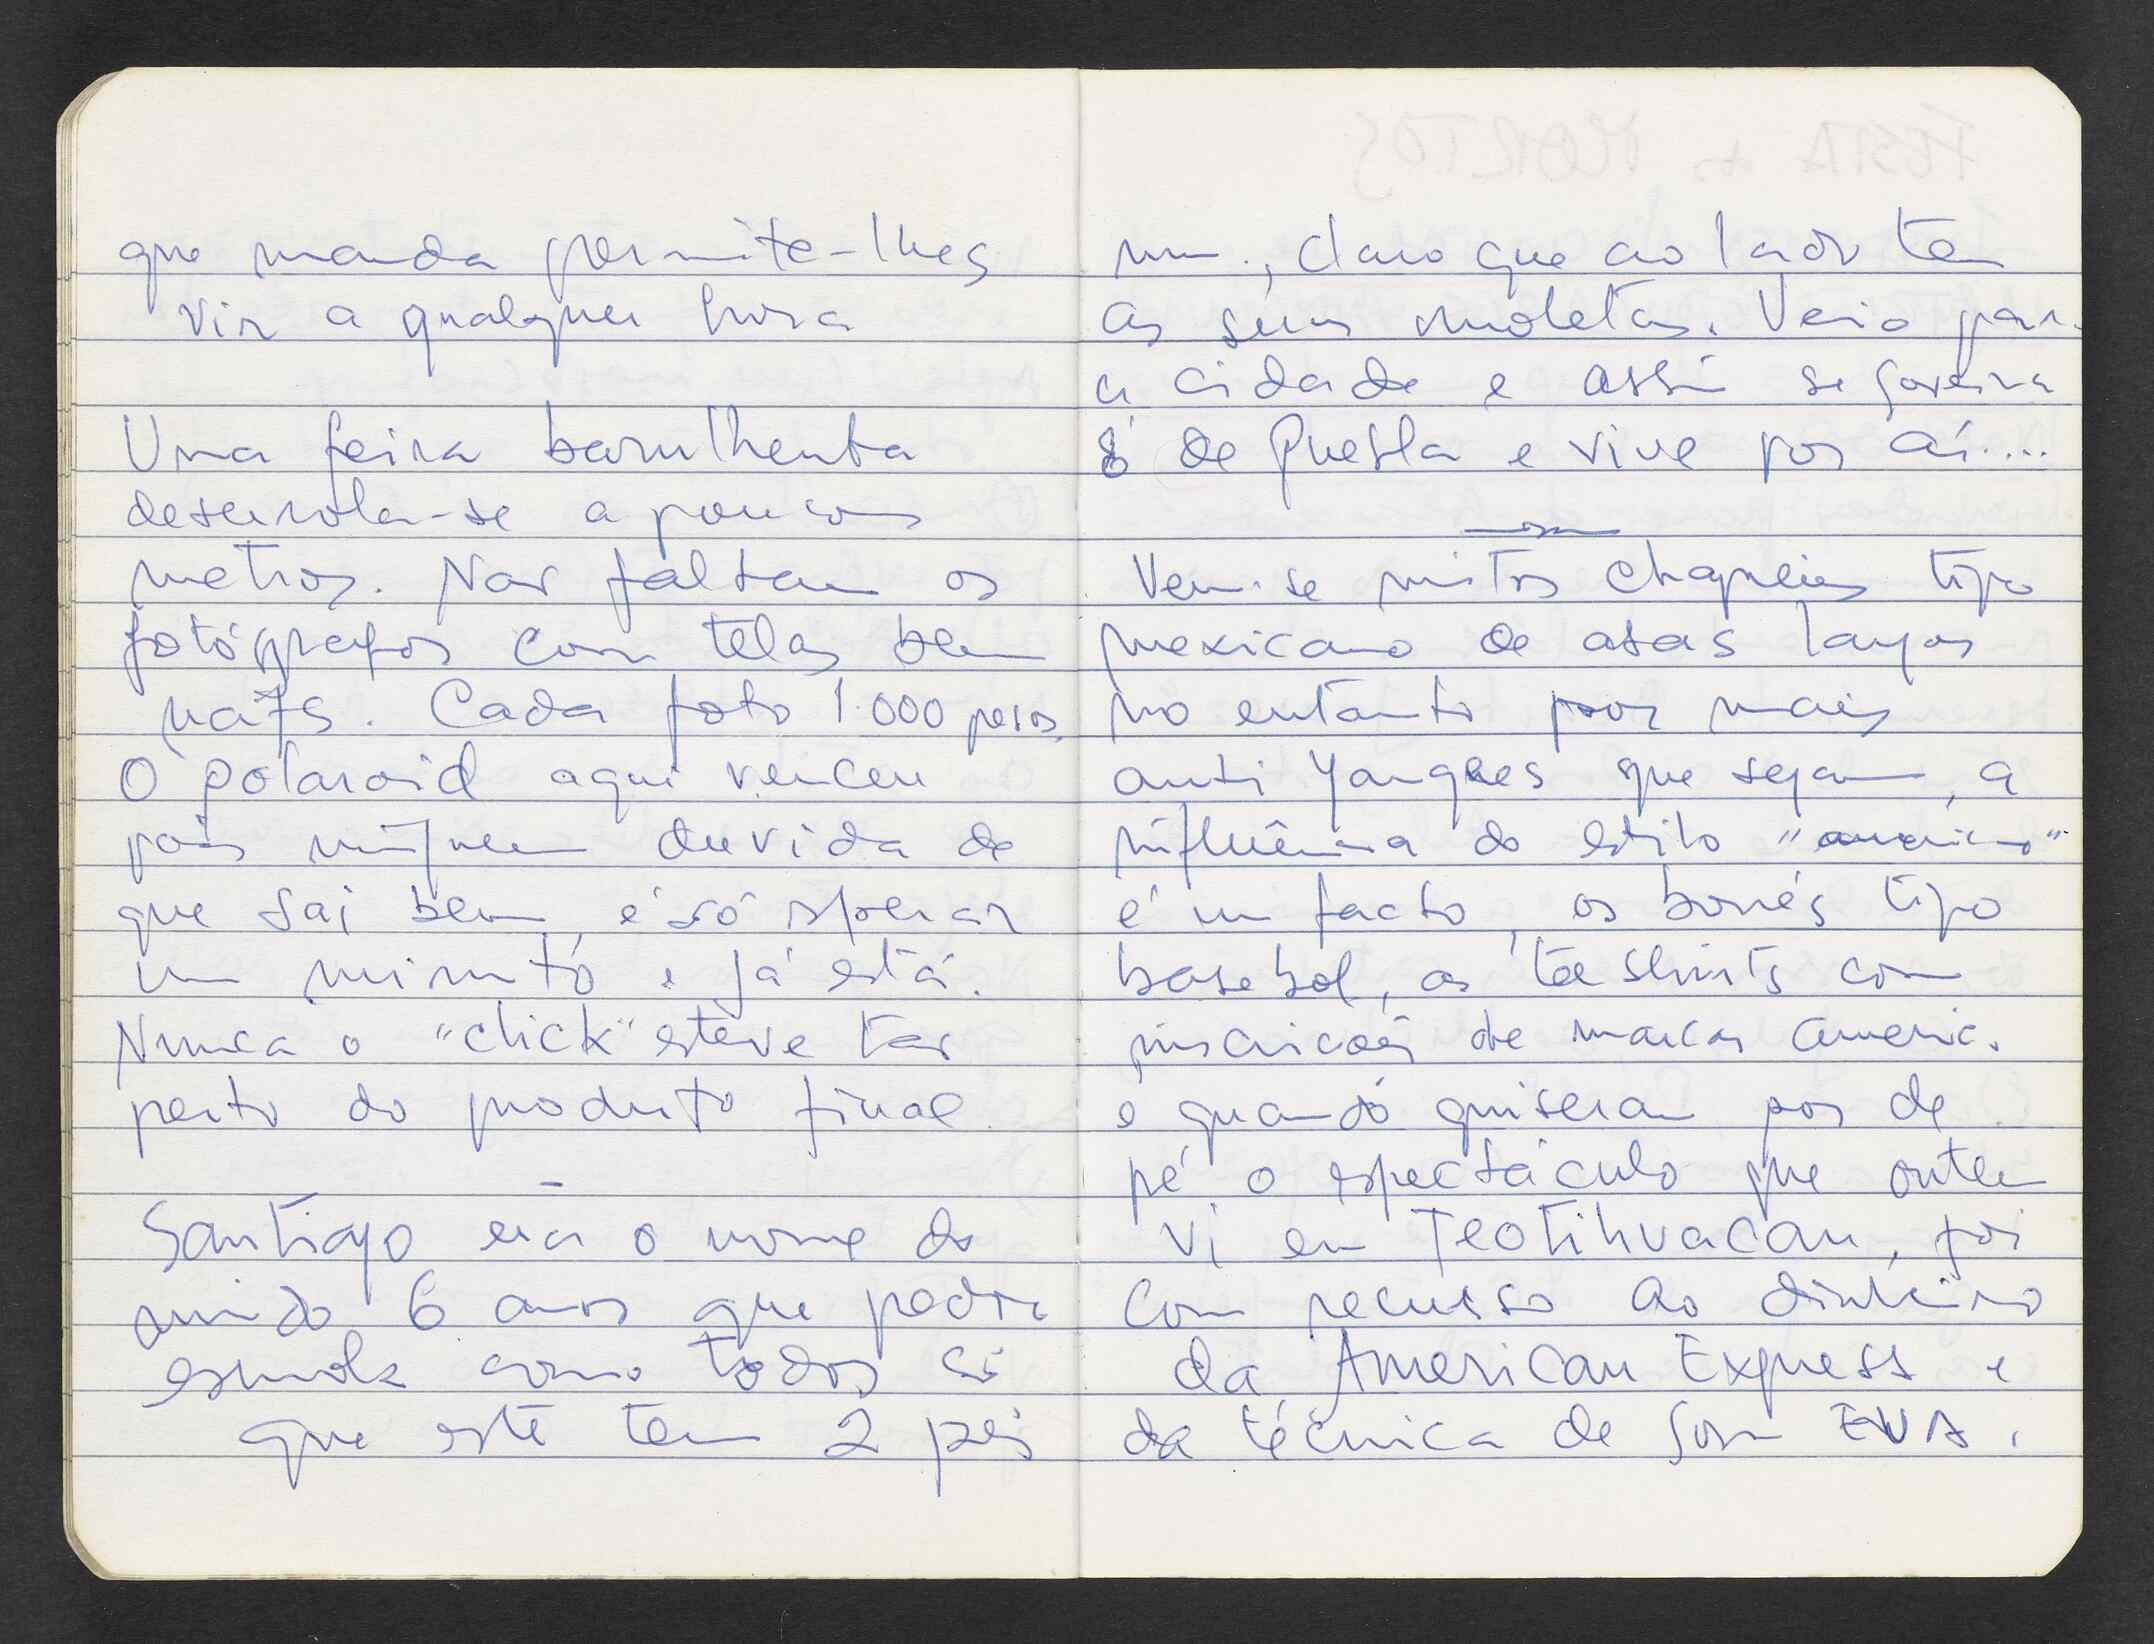 que manda permite-lhes
vir a qualquer hora
Uma feira barulhenta
desenrola-se a poucos
metros. Nao faltam os
fotógrafos com telas bem
naïfs. Cada foto 1.000 pesos.
O polaroid aqui venceu
pois ninguem duvida de
que sai bem, é só esperar
um minuto e já está.
Nunca o "click" esteve tao
perto do produto final
Santiago era o nome do
miudo 6 anos que pedia
esmola como todos só
que este tem 2 pés
num, claro que ao lado tem
as suas muletas. Veio para
a cidade e assi se governa
é de Puebla e vive por aí....
Vem-se muitos chapeus tipo
mexicano de abas largas
no entanto por mais
anti Yanques que sejam, a
influência do estilo "americano"
é um facto, os bonés tipo
basebol, as tee shirts com
inscricões de marcas americ.
e quando quiseram por de
pé o espectáculo que ontem
vi em Teotihuacan, foi
com recurso ao dinheiro
da American Express e
da técnica de som EUA.